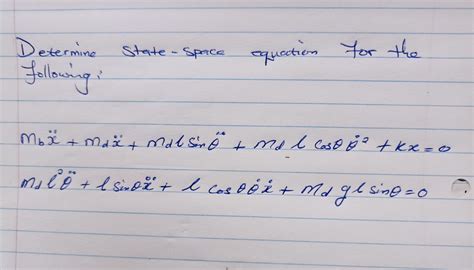 Determine state-space equation for the
following:
m_bẍ + m_dẍ + m_d l sinθ̈ + m_d l cosθ θ̇² + kx = 0
m_d l²θ̈ + l sinθẍ + l cosθ θ̇ẋ + m_d g l sinθ = 0